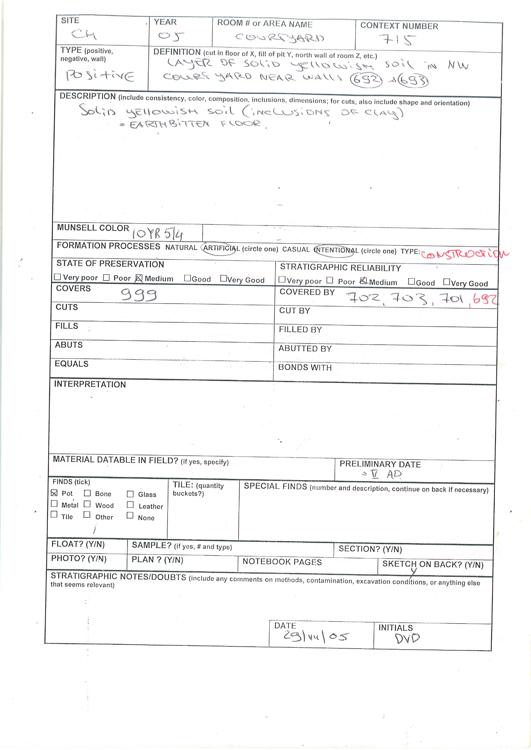 SITE YEAR ROOM # or AREA NAME CONTEXT NUMBER
CH 05 COURTYARD 715
TYPE (positive, negative, wall) DEFINITION (cut in floor of X, fill of pit Y, north wall of room Z, etc.)
POSITIVE LAYER OF SOLID YELLOWISH SOIL IN NW
COURTYARD NEAR WALLS (692) → (693)
DESCRIPTION (include consistency, color, composition, inclusions, dimensions; for cuts, also include shape and orientation)
SOLID YELLOWISH SOIL (INCLUSIONS OF CLAY)
= EARTHBITTEN FLOOR.
MUNSELL COLOR 10YR 5/4
FORMATION PROCESSES NATURAL ARTIFICIAL (circle one) CASUAL INTENTIONAL (circle one) TYPE: CONSTRUCTION
STATE OF PRESERVATION STRATIGRAPHIC RELIABILITY
☐ Very poor ☐ Poor ☒ Medium ☐ Good ☐ Very Good ☐ Very poor ☐ Poor ☒ Medium ☐ Good ☐ Very Good
COVERS 999 COVERED BY 702, 703, 701, 692
CUTS CUT BY
FILLS FILLED BY
ABUTS ABUTTED BY
EQUALS BONDS WITH
INTERPRETATION
MATERIAL DATABLE IN FIELD? (if yes, specify) PRELIMINARY DATE
V AD
FINDS (tick) TILE: (quantity buckets?) SPECIAL FINDS (number and description, continue on back if necessary)
☒ Pot ☐ Bone ☐ Glass
☐ Metal ☐ Wood ☐ Leather
☐ Tile ☐ Other ☐ None
FLOAT? (Y/N) SAMPLE? (if yes, # and type) SECTION? (Y/N)
PHOTO? (Y/N) PLAN ? (Y/N) NOTEBOOK PAGES SKETCH ON BACK? (Y/N)
Y
STRATIGRAPHIC NOTES/DOUBTS (include any comments on methods, contamination, excavation conditions, or anything else
that seems relevant)
DATE INITIALS
29/VII/05 DVD